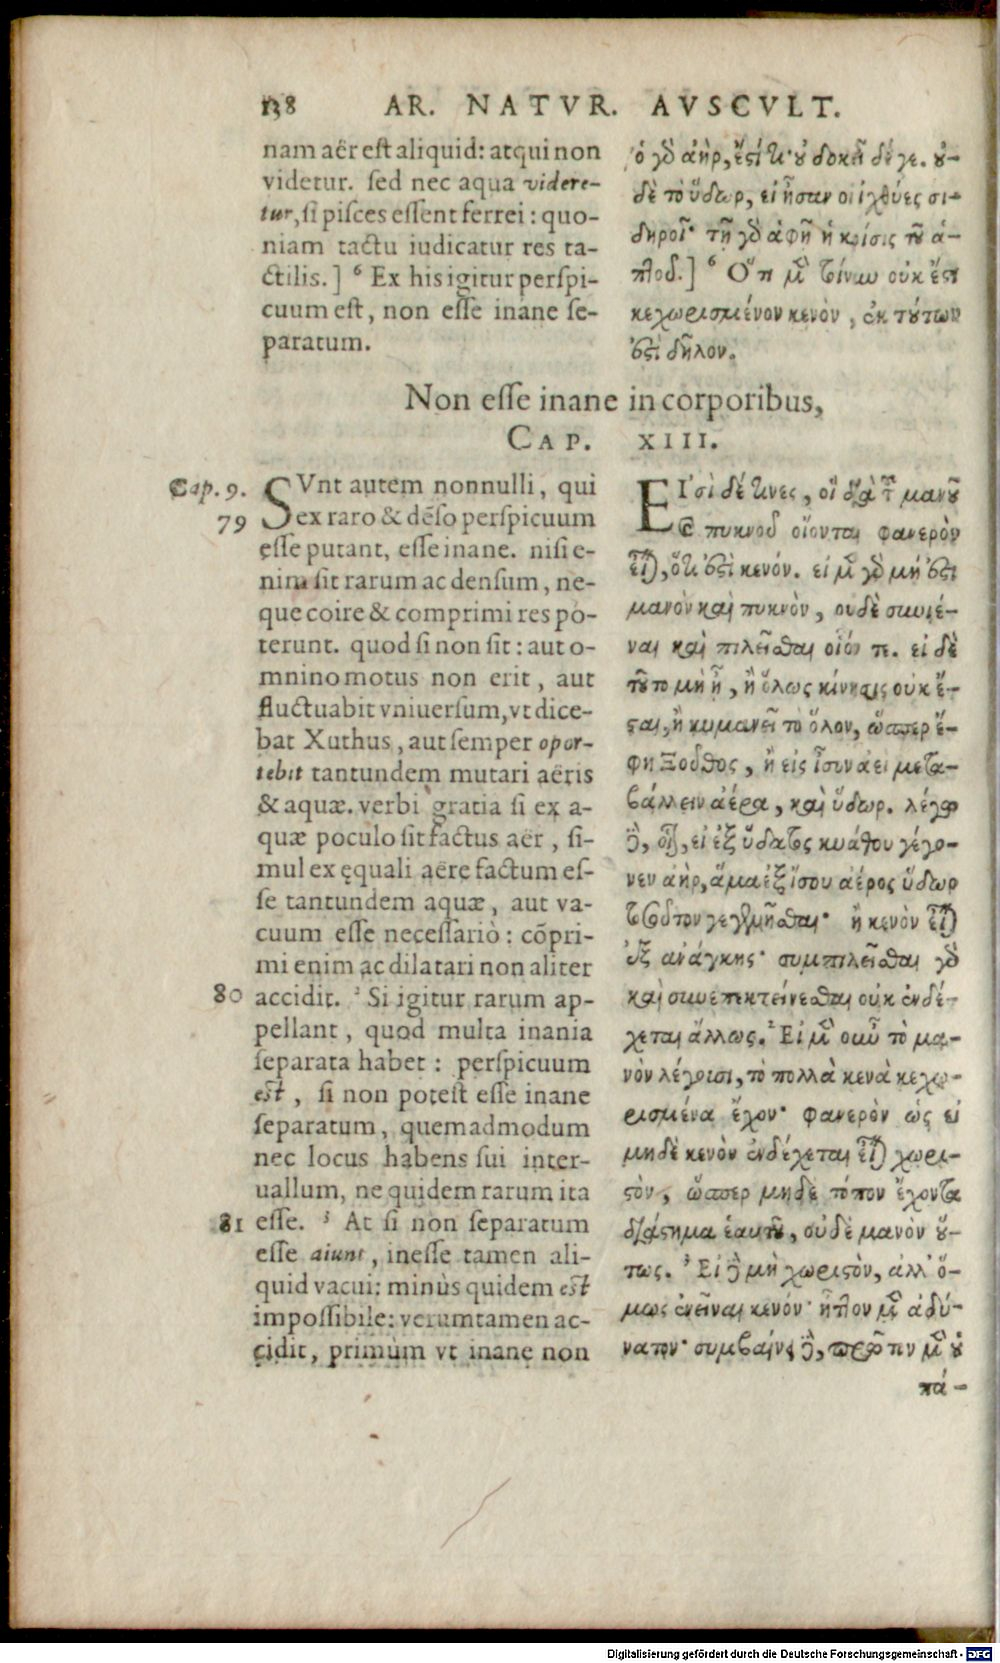 138 AR. NATVR. AVSCVLT.
nam aër est aliquid: atqui non
videtur. sed nec aqua videre-
tur, si pisces essent ferrei: quo-
niam tactu iudicatur res ta-
ctilis.] 6 Ex his igitur perspi-
cuum est, non esse inane se-
paratum.
ὁ γὸ ἀὴρ, ἔςί τι· ȣ̓ δοκεῖ δέ γε. ȣ̓-
δὲ τὸ ὕδωρ, εἰ ἦσαν οἱ ἰχθύες σι-
δηροῖ· τῇ γὸ ἁφῇ ἡ κρίσις τȣ̃ ἁ-
πτοῦ.] 6 Ὅτι μὲν τοίνυν οὐκ ἔςι
κεχωρισμένον κενὸν, ἐκ τȣ́των
ἐςὶ δῆλον.
Non esse inane in corporibus,
CAP. XIII.
Cap. 9.
79
SVnt autem nonnulli, qui
ex raro & dẽso perspicuum
esse putant, esse inane. nisi e-
nim sit rarum ac densum, ne-
que coire & comprimi res po-
terunt. quod si non sit: aut o-
mnino motus non erit, aut
fluctuabit vniuersum, vt dice-
bat Xuthus, aut semper opor-
tebit tantundem mutari aëris
& aquæ. verbi gratia si ex a-
quæ poculo sit factus aër, si-
mul ex ęquali aëre factum es-
se tantundem aquæ, aut va-
cuum esse necessariò: cõpri-
mi enim ac dilatari non aliter
80 accidit. 2 Si igitur rarum ap-
pellant, quod multa inania
separata habet: perspicuum
est, si non potest esse inane
separatum, quemadmodum
nec locus habens sui inter-
uallum, ne quidem rarum ita
81 esse. 3 At si non separatum
esse aiunt, inesse tamen ali-
quid vacui: minùs quidem est
impossibile: verumtamen ac-
cidit, primùm vt inane non
ΕἸσὶ δέ τινες, οἳ διὰ τȣ̃ μανȣ̃
καὶ πυκνοῦ οἴονται φανερὸν
εἶναι, ὅτι ἐςὶ κενόν. εἰ μὲν γὸ μή ἐςι
μανὸν καὶ πυκνὸν, ουδὲ συνιέ-
ναι καὶ πιλεῖσθαι οἷόν τε. εἰ δὲ
τȣ̃το μὴ ᾖ, ἢ ὅλως κίνησις οὐκ ἔ-
ςαι, ἢ κυμανεῖ τὸ ὅλον, ὥσπερ ἔ-
φη Ξοῦθος, ἢ εἰς ἴσυν ἀεὶ μεταβ-
βάλλειν ἀέρα, καὶ ὕδωρ. λέγω
δὲ, οἷον, εἰ ἐξ ὕδατος κυάθου γέγο-
νεν ἀὴρ, ἅμα ἐξ ἴσου ἀέρος ὕδωρ
τοσοῦτον γεγενῆσθαι· ἢ κενὸν εἶναι
ἐξ ἀνάγκης· συμπιλεῖσθαι γὸ
καὶ συνεπεκτείνεσθαι οὐκ ἐνδέ-
χεται ἄλλως. 2 Εἰ μὲν οὖν τὸ μα-
νὸν λέγουσι, τὸ πολλὰ κενὰ κεχω-
ρισμένα ἔχον· φανερὸν ὡς εἰ
μηδὲ κενὸν ἐνδέχεται εἶναι χωρι-
ςὸν, ὥσπερ μηδὲ τόπον ἔχοντα
διάςημα ἑαυτȣ̃, οὐδὲ μανὸν ȣ̔́-
τως. 3 Εἰ δὲ μὴ χωριςὸν, ἀλλ' ὅ-
μως ἐνεῖναι κενόν· ἧττον μὲν ἀδύ-
νατον· συμβαίνει δὲ, πρῶτον μὲν ȣ̓
πά-
Digitalisierung gefördert durch die Deutsche Forschungsgemeinschaft - DFG